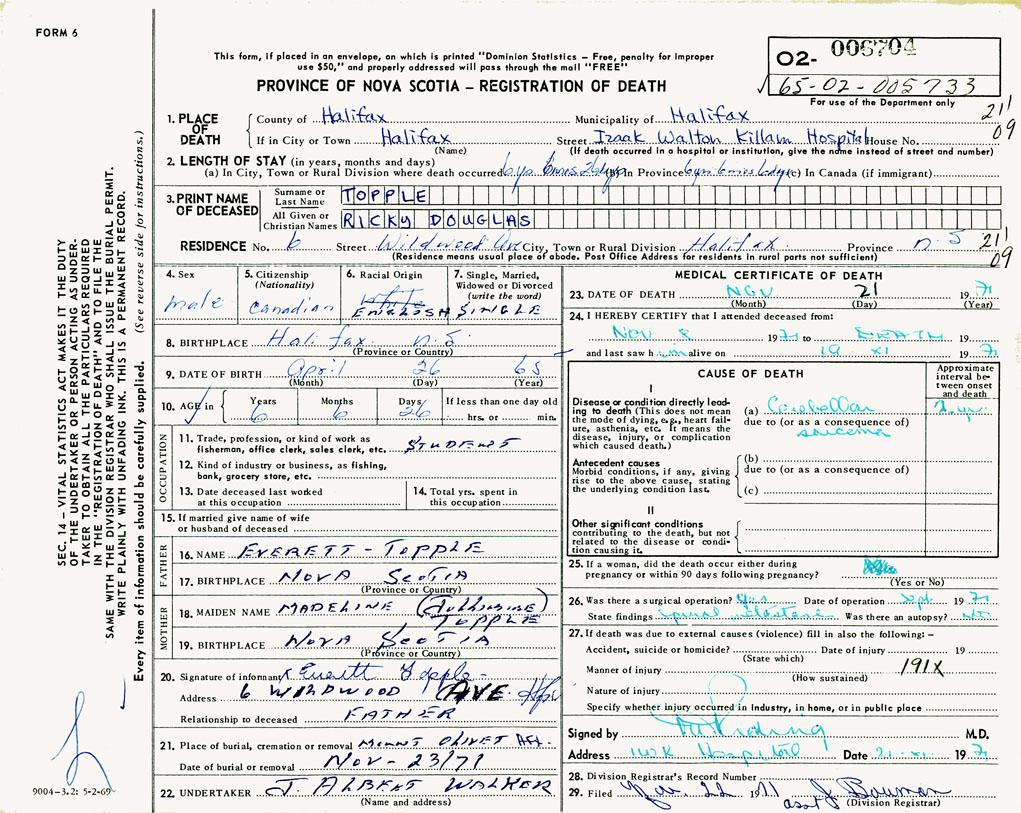 FORM 6
This form, if placed in an envelope, on which is printed "Dominion Statistics – Free, penalty for improper
use $50," and properly addressed will pass through the mail "FREE"
PROVINCE OF NOVA SCOTIA – REGISTRATION OF DEATH
02- 006704
65-02-005733
For use of the Department only
211
09
1. PLACE OF DEATH
County of Halifax Municipality of Halifax
If in City or Town Halifax Street Izaak Walton Killam Hospital House No.
(Name) (If death occurred in a hospital or institution, give the name instead of street and number)
2. LENGTH OF STAY (in years, months and days)
(a) In City, Town or Rural Division where death occurred (b) In Province (c) In Canada (if immigrant)
3. PRINT NAME OF DECEASED
Surname or Last Name TOPPLE
All Given or Christian Names RICKY DOUGLAS
RESIDENCE No. 6 Street Wildwood Ave City, Town or Rural Division Halifax Province N.S 211
09
(Residence means usual place of abode. Post Office Address for residents in rural parts not sufficient)
4. Sex
male
5. Citizenship
(Nationality)
Canadian
6. Racial Origin
White
ENGLISH
7. Single, Married,
Widowed or Divorced
(write the word)
SINGLE
8. BIRTHPLACE Halifax N.S.
(Province or Country)
9. DATE OF BIRTH April 26 65
(Month) (Day) (Year)
10. AGE in Years Months Days If less than one day old
6 6 26 hrs. or min.
OCCUPATION
11. Trade, profession, or kind of work as
fisherman, office clerk, sales clerk, etc. STUDENT
12. Kind of industry or business, as fishing,
bank, grocery store, etc.
13. Date deceased last worked
at this occupation
14. Total yrs. spent in
this occupation
15. If married give name of wife
or husband of deceased
FATHER
16. NAME EVERETT - TOPPLE
17. BIRTHPLACE NOVA SCOTIA
(Province or Country)
MOTHER
18. MAIDEN NAME MADELINE TOPPLE
19. BIRTHPLACE NOVA SCOTIA
(Province or Country)
20. Signature of informant x Everett Topple
Address 6 WILDWOOD AVE. Hfx
Relationship to deceased FATHER
21. Place of burial, cremation or removal MOUNT OLIVET
Date of burial or removal NOV - 23/71
22. UNDERTAKER J. ALBERT WALKER
(Name and address)
MEDICAL CERTIFICATE OF DEATH
23. DATE OF DEATH NOV 21 19 71
(Month) (Day) (Year)
24. I HEREBY CERTIFY that I attended deceased from:
NOV 8 19 71 to DEATH
and last saw him alive on 19 XI 19 71
CAUSE OF DEATH
Approximate
interval be-
tween onset
and death
I
Disease or condition directly lead-
ing to death (This does not mean
the mode of dying, e.g., heart fail-
ure, asthenia, etc. It means the
disease, injury, or complication
which caused death.)
(a) Cerebellar 2 yr.
due to (or as a consequence of)
sarcoma
Antecedent causes
Morbid conditions, if any, giving
rise to the above cause, stating
the underlying condition last.
(b)
due to (or as a consequence of)
(c)
II
Other significant conditions
contributing to the death, but not
related to the disease or condi-
tion causing it.
25. If a woman, did the death occur either during
pregnancy or within 90 days following pregnancy?
(Yes or No)
26. Was there a surgical operation? Yes Date of operation Sept 19 71
State findings spinal Was there an autopsy? NO
27. If death was due to external causes (violence) fill in also the following: –
Accident, suicide or homicide? Date of injury 19
(State which)
Manner of injury 191X
(How sustained)
Nature of injury
Specify whether injury occurred in Industry, in home, or in public place
Signed by M.D.
Address IWK Hospital Date 21 - XI - 19 71
28. Division Registrar's Record Number
29. Filed Nov. 22 1971 asst J. Bauman
(Division Registrar)
SEC. 14 – VITAL STATISTICS ACT MAKES IT THE DUTY
OF THE UNDERTAKER OR PERSON ACTING AS UNDER-
TAKER TO OBTAIN ALL THE PARTICULARS REQUIRED
IN THE "REGISTRATION OF DEATH" AND TO FILE THE
SAME WITH THE DIVISION REGISTRAR WHO SHALL ISSUE THE BURIAL PERMIT.
WRITE PLAINLY WITH UNFADING INK. THIS IS A PERMANENT RECORD.
Every item of information should be carefully supplied. (See reverse side for instructions.)
9004-3.2: 5-2-69